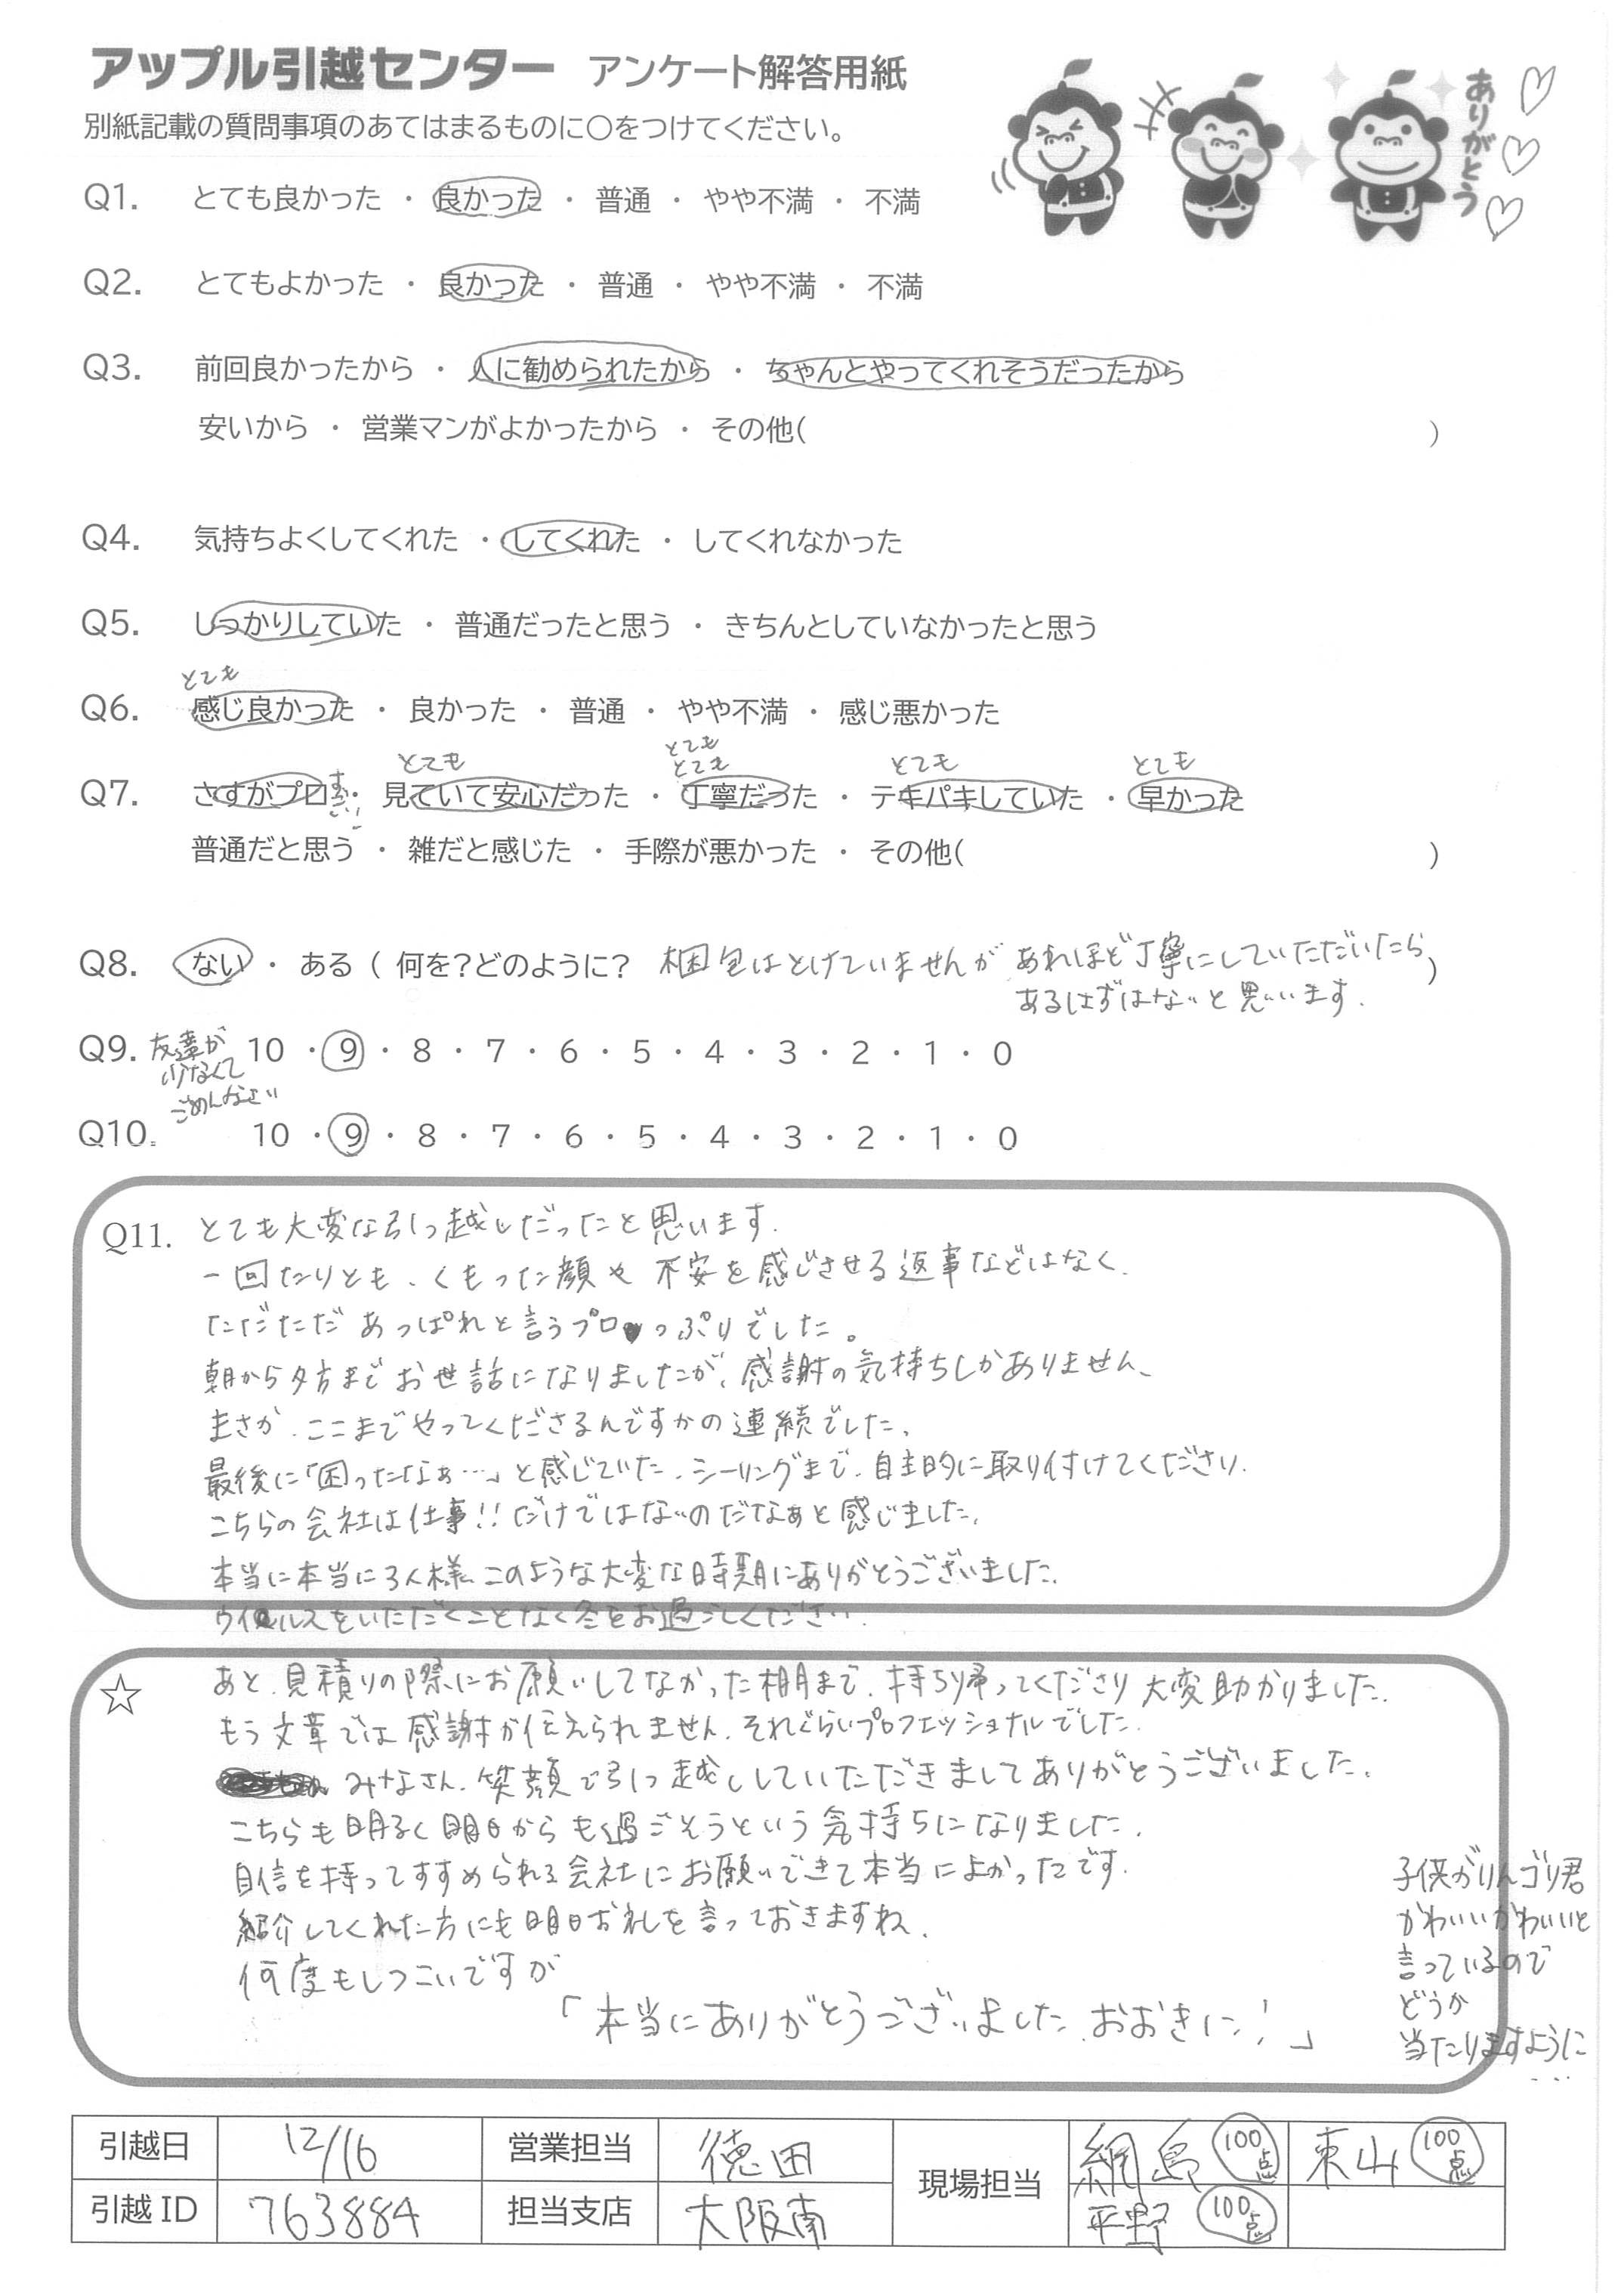 アップル引越センター アンケート解答用紙
別紙記載の質問事項のあてはまるものに○をつけてください。
ありがとう
Q1. とても良かった ・ 良かった ・ 普通 ・ やや不満 ・ 不満
Q2. とてもよかった ・ 良かった ・ 普通 ・ やや不満 ・ 不満
Q3. 前回良かったから ・ 人に勧められたから ・ ちゃんとやってくれそうだったから
安いから ・ 営業マンがよかったから ・ その他( )
Q4. 気持ちよくしてくれた ・ してくれた ・ してくれなかった
Q5. しっかりしていた ・ 普通だったと思う ・ きちんとしていなかったと思う
とても
Q6. 感じ良かった ・ 良かった ・ 普通 ・ やや不満 ・ 感じ悪かった
とても とても とても とても とても
Q7. さすがプロ ・ 見ていて安心だった ・ 丁寧だった ・ テキパキしていた ・ 早かった
普通だと思う ・ 雑だと感じた ・ 手際が悪かった ・ その他( )
Q8. ない ・ ある ( 何を?どのように? 梱包はとけていませんが あれほど丁寧にしていただいたら )
あるはずはないと思います.
Q9. 友達が少なくてごめんなさい 10 ・ 9 ・ 8 ・ 7 ・ 6 ・ 5 ・ 4 ・ 3 ・ 2 ・ 1 ・ 0
Q10. 10 ・ 9 ・ 8 ・ 7 ・ 6 ・ 5 ・ 4 ・ 3 ・ 2 ・ 1 ・ 0
Q11. とても大変な引っ越しだったと思います.
一回たりとも、くもった顔や 不安を感じさせる返事などはなく、
ただただ あっぱれと言うプロっぷりでした。
朝から夕方まで お世話になりましたが、感謝の気持ちしかありません、
まさか、ここまでやってくださるんですかの連続でした、
最後に「困ったなぁ…」と感じていた、シーリングまで、自主的に取り付けてくださり、
こちらの会社は仕事!! だけではないのだなぁと感じました、
本当に本当に3人様、このような大変な時期にありがとうございました.
ウイルスをいただくことなく冬をお過ごしください.
☆ あと、見積りの際にお願いしてなかった棚まで、持ち帰ってくださり 大変助かりました.
もう文章では感謝が伝えられません、それぐらいプロフェッショナルでした.
みなさん、笑顔で引っ越ししていただきましてありがとうございました.
こちらも明るく明日からも過ごそうという気持ちになりました.
自信を持ってすすめられる会社にお願いできて本当によかったです.
紹介してくれた方にも明日お礼を言っておきますね.
何度もしつこいですが
「本当にありがとうございました、おおきに!」
子供がりんゴリ君
かわいいかわいいと
言っているので
どうか
当たりますように
引越日 12/16 営業担当 徳田 現場担当 網島 100点 東山 100点
引越ID 763884 担当支店 大阪南 平野 100点